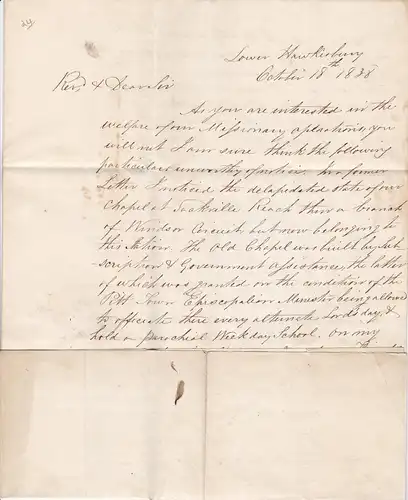 Lower Hawkesbury
October 18th 1838
Revd & Dear Sir
As you are interested in the
welfare of our Missionary operations, you
will not I am sure think the following
particulars unworthy of notice. In a former
Letter I noticed the delapedated state of our
Chapel at Sackville Reach then a branch
of Windsor Circuit but now belonging to
this Station. The Old Chapel was built by Sub-
scription & Government assistance, the latter
of which was granted on the condition of the
Pitt-Town Episcopalian Minister being allowed
to officiate there every alternate Lord's day, &
hold a parochial Week day School. On my